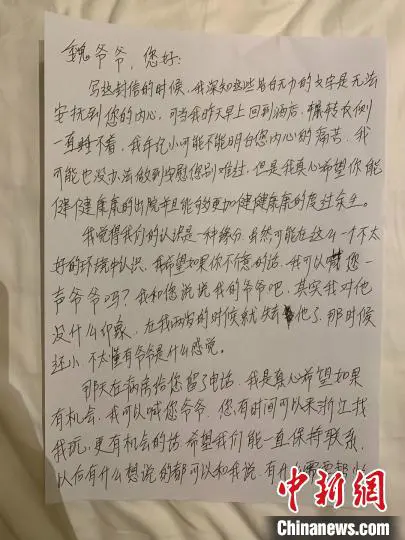 魏爷爷，您好：
写这封信的时候，我深知这些苍白无力的文字是无法
安抚到您的内心，可当我昨天早上回到酒店，辗转反侧
一直睡不着，我年纪小可能不能明白您内心的痛苦，我
可能也没办法做到安慰您别难过，但是我真心希望你能
健健康康的出院并且能够更加健健康康的度过余生。
我觉得我们的认识是一种缘分，虽然可能在这么一个不太
好的环境中认识，我希望如果你不介意的话，我可以喊您一
声爷爷吗？我和您说说我的爷爷吧，其实我对他
没什么印象，在我两岁的时候就失去他了，那时候
还小 不太懂有爷爷是什么感觉。
那天在病房给您留了电话，我是真心希望如果
有机会，我可以喊您爷爷，您有时间可以来浙江找
我玩，更有机会的话 希望我们能一直保持联系，
以后有什么想说的都可以和我说，有什么需要帮
中新网
WWW.CHINANEWS.COM